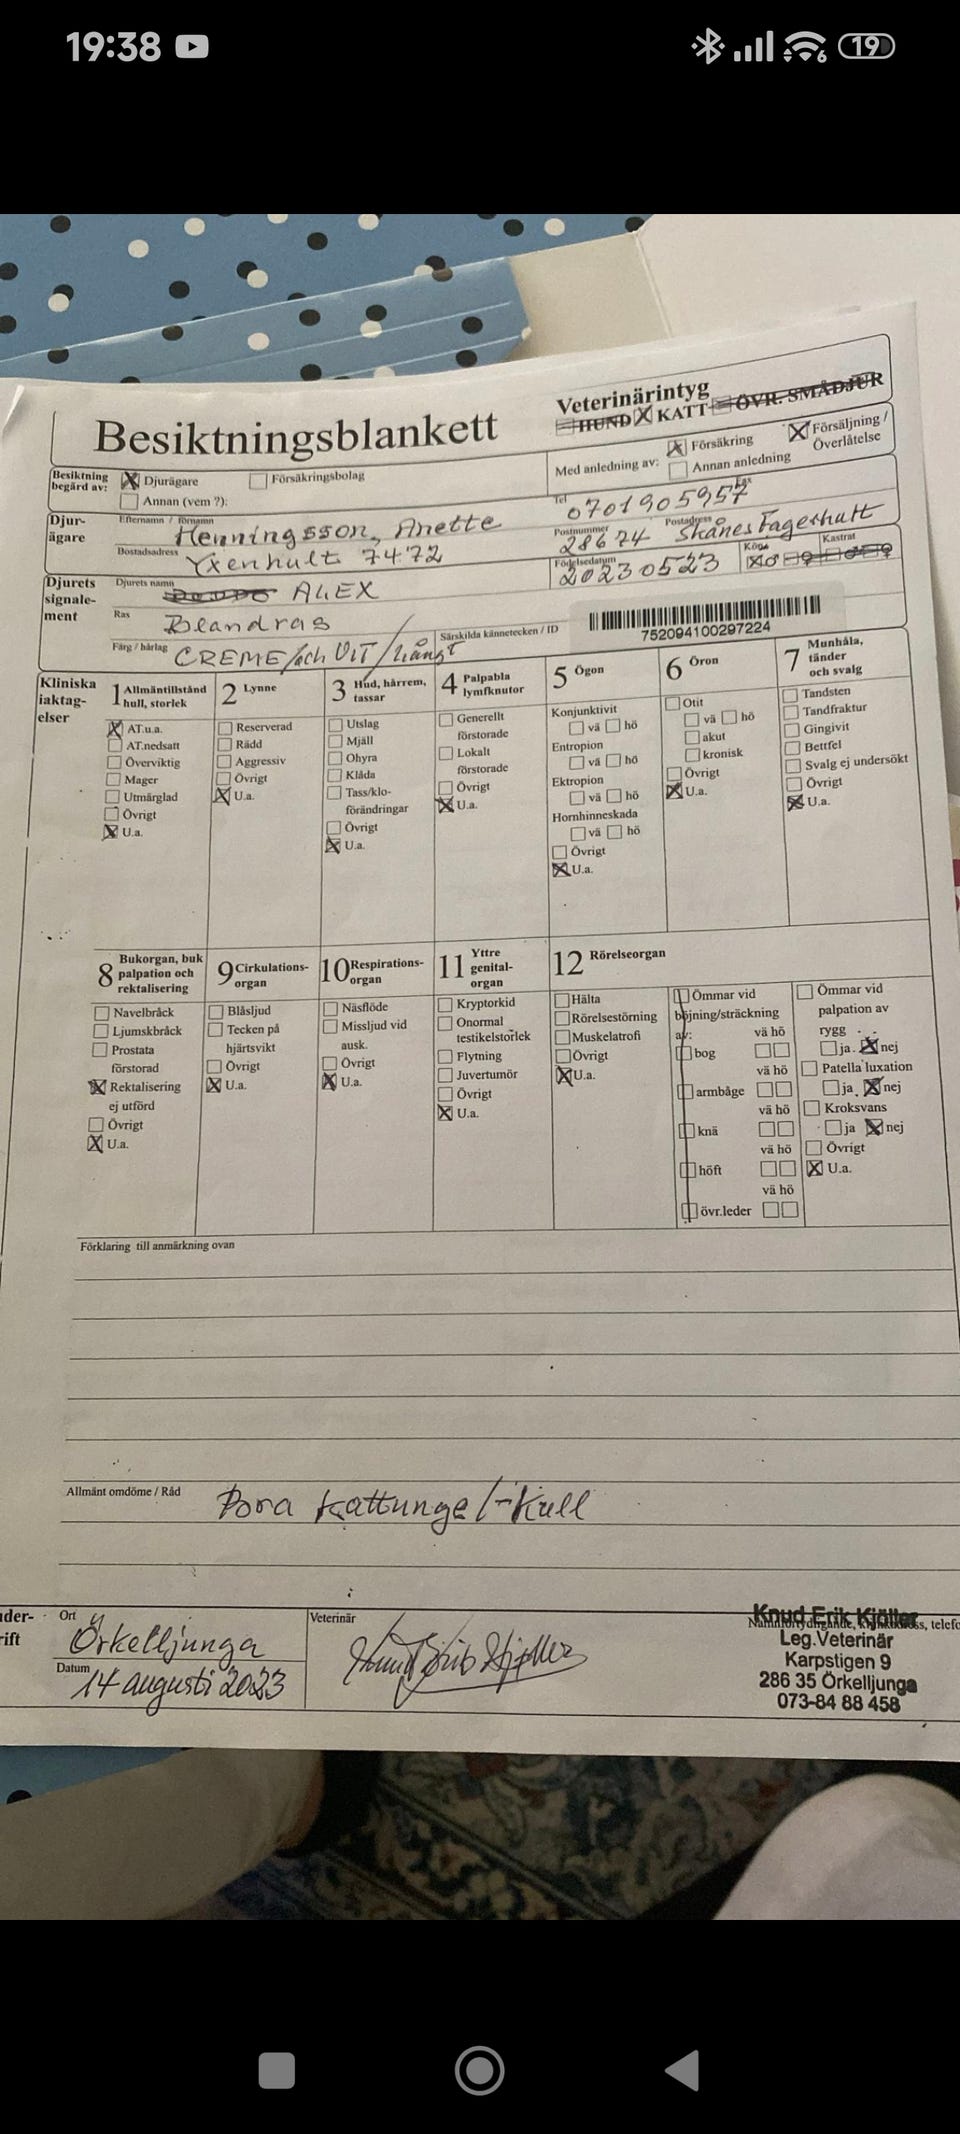 19:38
19
Besiktningsblankett
Veterinärintyg
HUND KATT ÖVR. SMÅDJUR
Besiktning begärd av:
Djurägare
Försäkringsbolag
Annan (vem ?):
Med anledning av:
Försäkring
Försäljning / Överlåtelse
Annan anledning
Djurägare
Efternamn / förnamn
Henningsson, Anette
Tel
0701905957
Fax
Bostadsadress
Yxenhult 7472
Postnummer
28674
Postadress
Skånes Fagerhult
Djurets signalement
Djurets namn
ALEX
Födelsedatum
20230523
Kön
Kastrat
♂ ♀ ♂ ♀
Ras
Blandras
Färg / hårlag
CREME/och VIT/Långt
Särskilda kännetecken / ID
752094100297224
Kliniska iakttagelser
1 Allmäntillstånd hull, storlek
AT.u.a.
AT.nedsatt
Överviktig
Mager
Utmärglad
Övrigt
U.a.
2 Lynne
Reserverad
Rädd
Aggressiv
Övrigt
U.a.
3 Hud, hårrem, tassar
Utslag
Mjäll
Ohyra
Klåda
Tass/klo-
förändringar
Övrigt
U.a.
4 Palpabla lymfknutor
Generellt
förstorade
Lokalt
förstorade
Övrigt
U.a.
5 Ögon
Konjunktivit
vä hö
Entropion
vä hö
Ektropion
vä hö
Hornhinneskada
vä hö
Övrigt
U.a.
6 Öron
Otit
vä hö
akut
kronisk
Övrigt
U.a.
7 Munhåla, tänder och svalg
Tandsten
Tandfraktur
Gingivit
Bettfel
Svalg ej undersökt
Övrigt
U.a.
8 Bukorgan, buk palpation och rektalisering
Navelbråck
Ljumskbråck
Prostata
förstorad
Rektalisering
ej utförd
Övrigt
U.a.
9 Cirkulations-organ
Blåsljud
Tecken på
hjärtsvikt
Övrigt
U.a.
10 Respirations-organ
Näsflöde
Missljud vid
ausk.
Övrigt
U.a.
11 Yttre genital-organ
Kryptorkid
Onormal
testikelstorlek
Flytning
Juvertumör
Övrigt
U.a.
12 Rörelseorgan
Hälta
Rörelsestörning
Muskelatrofi
Övrigt
U.a.
Ömmar vid
böjning/sträckning
av: vä hö
bog
vä hö
armbåge
vä hö
knä
vä hö
höft
vä hö
övr.leder
Ömmar vid
palpation av
rygg
ja. nej
Patella luxation
ja. nej
Kroksvans
ja nej
Övrigt
U.a.
Förklaring till anmärkning ovan
Allmänt omdöme / Råd
Bora kattunge/-kull
Ort
Örkelljunga
Datum
14 augusti 2023
Veterinär
Knud Erik Kjöller
Leg.Veterinär
Karpstigen 9
286 35 Örkelljunga
073-84 88 458